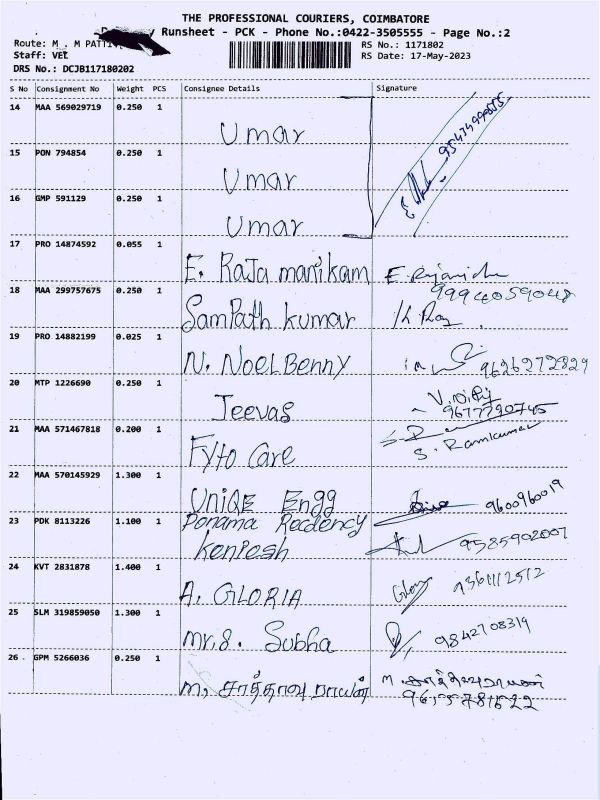 THE PROFESSIONAL COURIERS, COIMBATORE
Runsheet - PCK - Phone No.:0422-3505555 - Page No.:2
Route: M . M PATTI
RS No.: 1171802
Staff: VEL
RS Date: 17-May-2023
DRS No.: DCJB117180202
S No Consignment No Weight PCS Consignee Details Signature
14 MAA 569029719 0.250 1
Umar
15 PON 794854 0.250 1
Umar
16 GMP 591129 0.250 1
Umar
17 PRO 14874592 0.055 1
E. Raja manikam
18 MAA 299757675 0.250 1 9994059048
SamPath kumar
19 PRO 14882199 0.025 1
N. NOEL BENNY 9626272829
20 MTP 1226690 0.250 1
Jeevas 9677790745
21 MAA 571467818 0.200 1
Fyto Care S. Ramkumar
22 MAA 570145929 1.300 1
UNIQE Engg 9600960019
23 PDK 8113226 1.100 1 Panama Recdency
Keniesh 9585902007
24 KVT 2831878 1.400 1
A. GLORIA Glory 7361112512
25 SLM 319859050 1.300 1
mr.S. Subha 9842708319
26 . GPM 5266036 0.250 1
m,